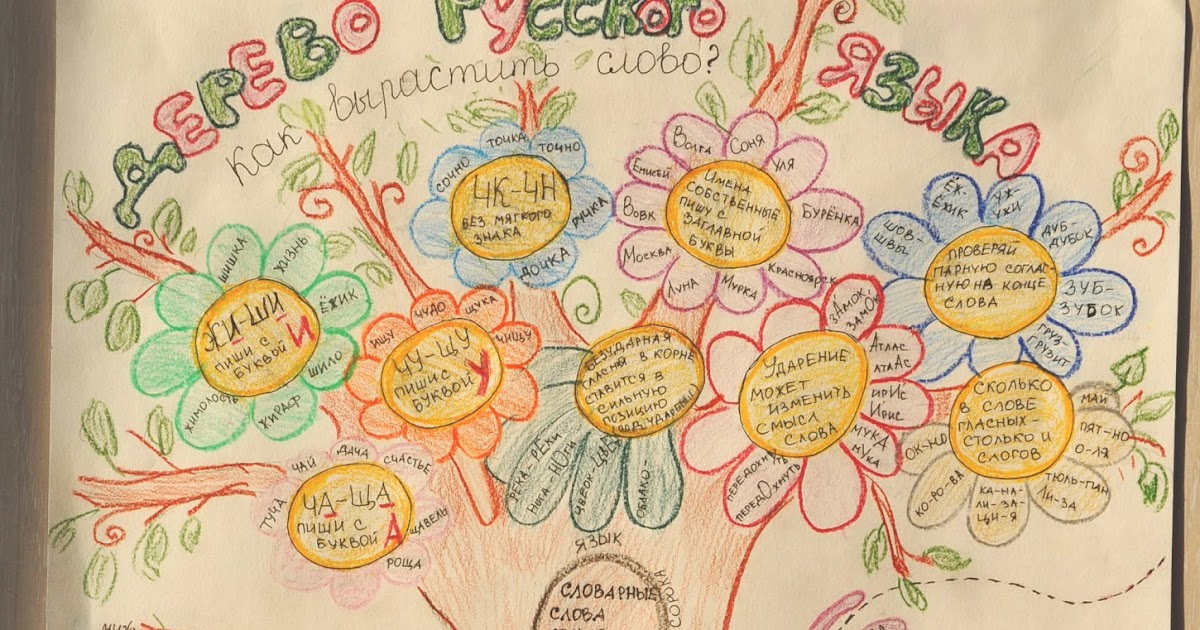 ДЕРЕВО РУССКОГО ЯЗЫКА
Как вырастить слово?
ЧК-ЧН
БЕЗ МЯГКОГО
ЗНАКА
СОЧНО
ТОЧКА
ТОЧНО
РУЧКА
ДОЧКА
ИМЕНА
СОБСТВЕННЫЕ
ПИШУ С
ЗАГЛАВНОЙ
БУКВЫ
ВОЛГА
СОНЯ
УЛЯ
БУРЁНКА
КРАСНОЯРСК
МУРКА
ЛУНА
МОСКВА
ВОВК
ЕНИСЕЙ
ПРОВЕРЯЙ
ПАРНУЮ СОГЛАС-
НУЮ НА КОНЦЕ
СЛОВА
ШОВ-
ШВЫ
ЁЖ-
ЁЖИК
УЖ-
УЖИ
ДУБ-
ДУБОК
ЗУБ-
ЗУБОК
ГРУЗ-
ГРУЗИТ
ЖИ-ШИ
ПИШИ С
БУКВОЙ И
ШИШКА
ЖИЗНЬ
ЁЖИК
ШИЛО
ЖИРАФ
ЖИМОЛОСТЬ
ЧУ-ЩУ
ПИШИ С
БУКВОЙ У
ИЩУ
ЧУДО
ЩУКА
ЧИЩУ
БЕЗУДАРНАЯ
ГЛАСНАЯ В КОРНЕ
СТАВИТСЯ В
СИЛЬНУЮ
ПОЗИЦИЮ
РЕКА-РЕКИ
НОГА-НОГИ
ОБЛАКО
УДАРЕНИЕ
МОЖЕТ
ИЗМЕНИТЬ
СМЫСЛ
СЛОВА
ЗАМОК-
ЗАМОК
АТЛАС
АТЛАС
ИРИС
ИРИС
МУКА
МУКА
ПЕРЕДОХНУТЬ
СКОЛЬКО
В СЛОВЕ
ГЛАСНЫХ-
СТОЛЬКО И
СЛОГОВ
МАЙ
ПЯТ-НО
О-ЛЯ
ТЮЛЬ-ПАН
ЛИ-ЗА
КА-НА-
ЛИ-ЗА-
ЦИ-Я
КО-РО-ВА
ОК-НО
ЧА-ЩА
ПИШИ С
БУКВОЙ А
ЧАЙ
ДАЧА
СЧАСТЬЕ
ЩАВЕЛЬ
РОЩА
ТУЧА
ЯЗЫК
СЛОВАРНЫЕ
СЛОВА
СОРОКА